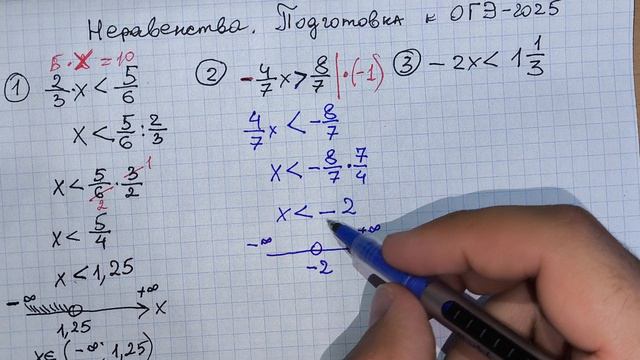 Неравенства. Подготовка к ОГЭ-2025
5 · x = 10
① 2/3 · x < 5/6
x < 5/6 : 2/3
x < 5/6 · 3/2
1
2
x < 5/4
x < 1,25
-∞ +∞ x
1,25
x ∈ (-∞; 1,25)
② -4/7 x > 8/7 | · (-1)
4/7 x < -8/7
x < -8/7 · 7/4
x < -2
-∞ +∞
-2
③ -2x < 1 1/3